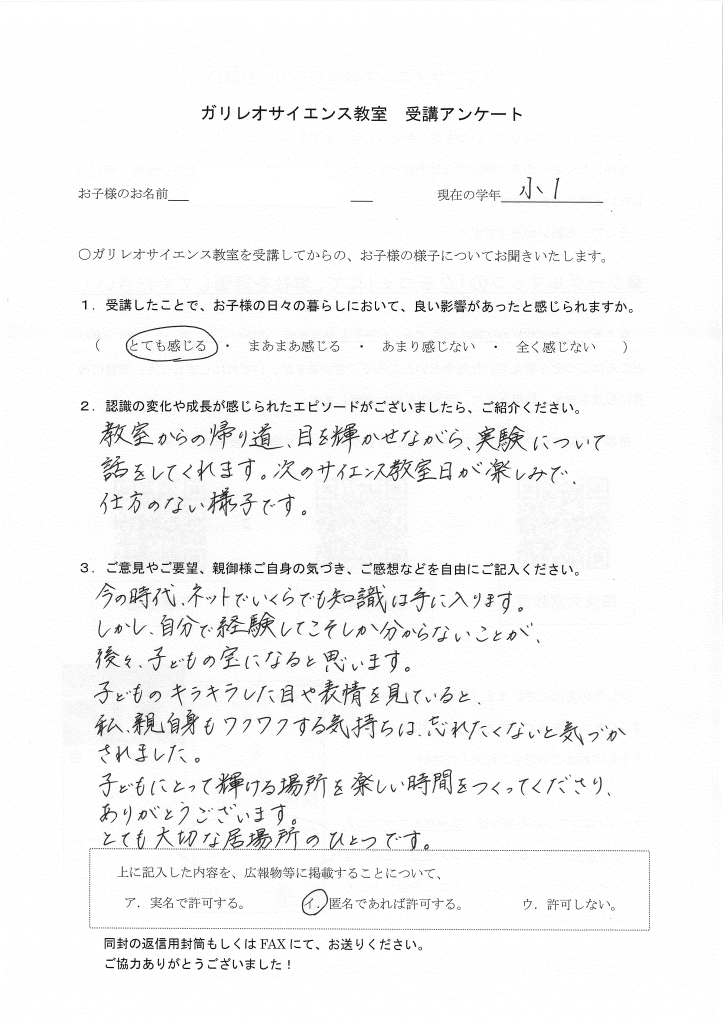 ガリレオサイエンス教室　受講アンケート
お子様のお名前　　　現在の学年 小1
○ガリレオサイエンス教室を受講してからの、お子様の様子についてお聞きいたします。
１．受講したことで、お子様の日々の暮らしにおいて、良い影響があったと感じられますか。
（　とても感じる　・　まあまあ感じる　・　あまり感じない　・　全く感じない　）
２．認識の変化や成長が感じられたエピソードがございましたら、ご紹介ください。
教室からの帰り道、目を輝かせながら、実験について
話をしてくれます。次のサイエンス教室日が楽しみで、
仕方のない様子です。
３．ご意見やご要望、親御様ご自身の気づき、ご感想などを自由にご記入ください。
今の時代、ネットでいくらでも知識は手に入ります。
しかし、自分で経験してこそしか分からないことが、
後々、子どもの宝になると思います。
子どものキラキラした目や表情を見ていると、
私、親自身もワクワクする気持ちは、忘れたくないと気づか
されました。
子どもにとって輝ける場所を楽しい時間をつくってくださり、
ありがとうございます。
とても大切な居場所のひとつです。
上に記入した内容を、広報物等に掲載することについて、
ア．実名で許可する。　イ．匿名であれば許可する。　ウ．許可しない。
同封の返信用封筒もしくは FAX にて、お送りください。
ご協力ありがとうございました！